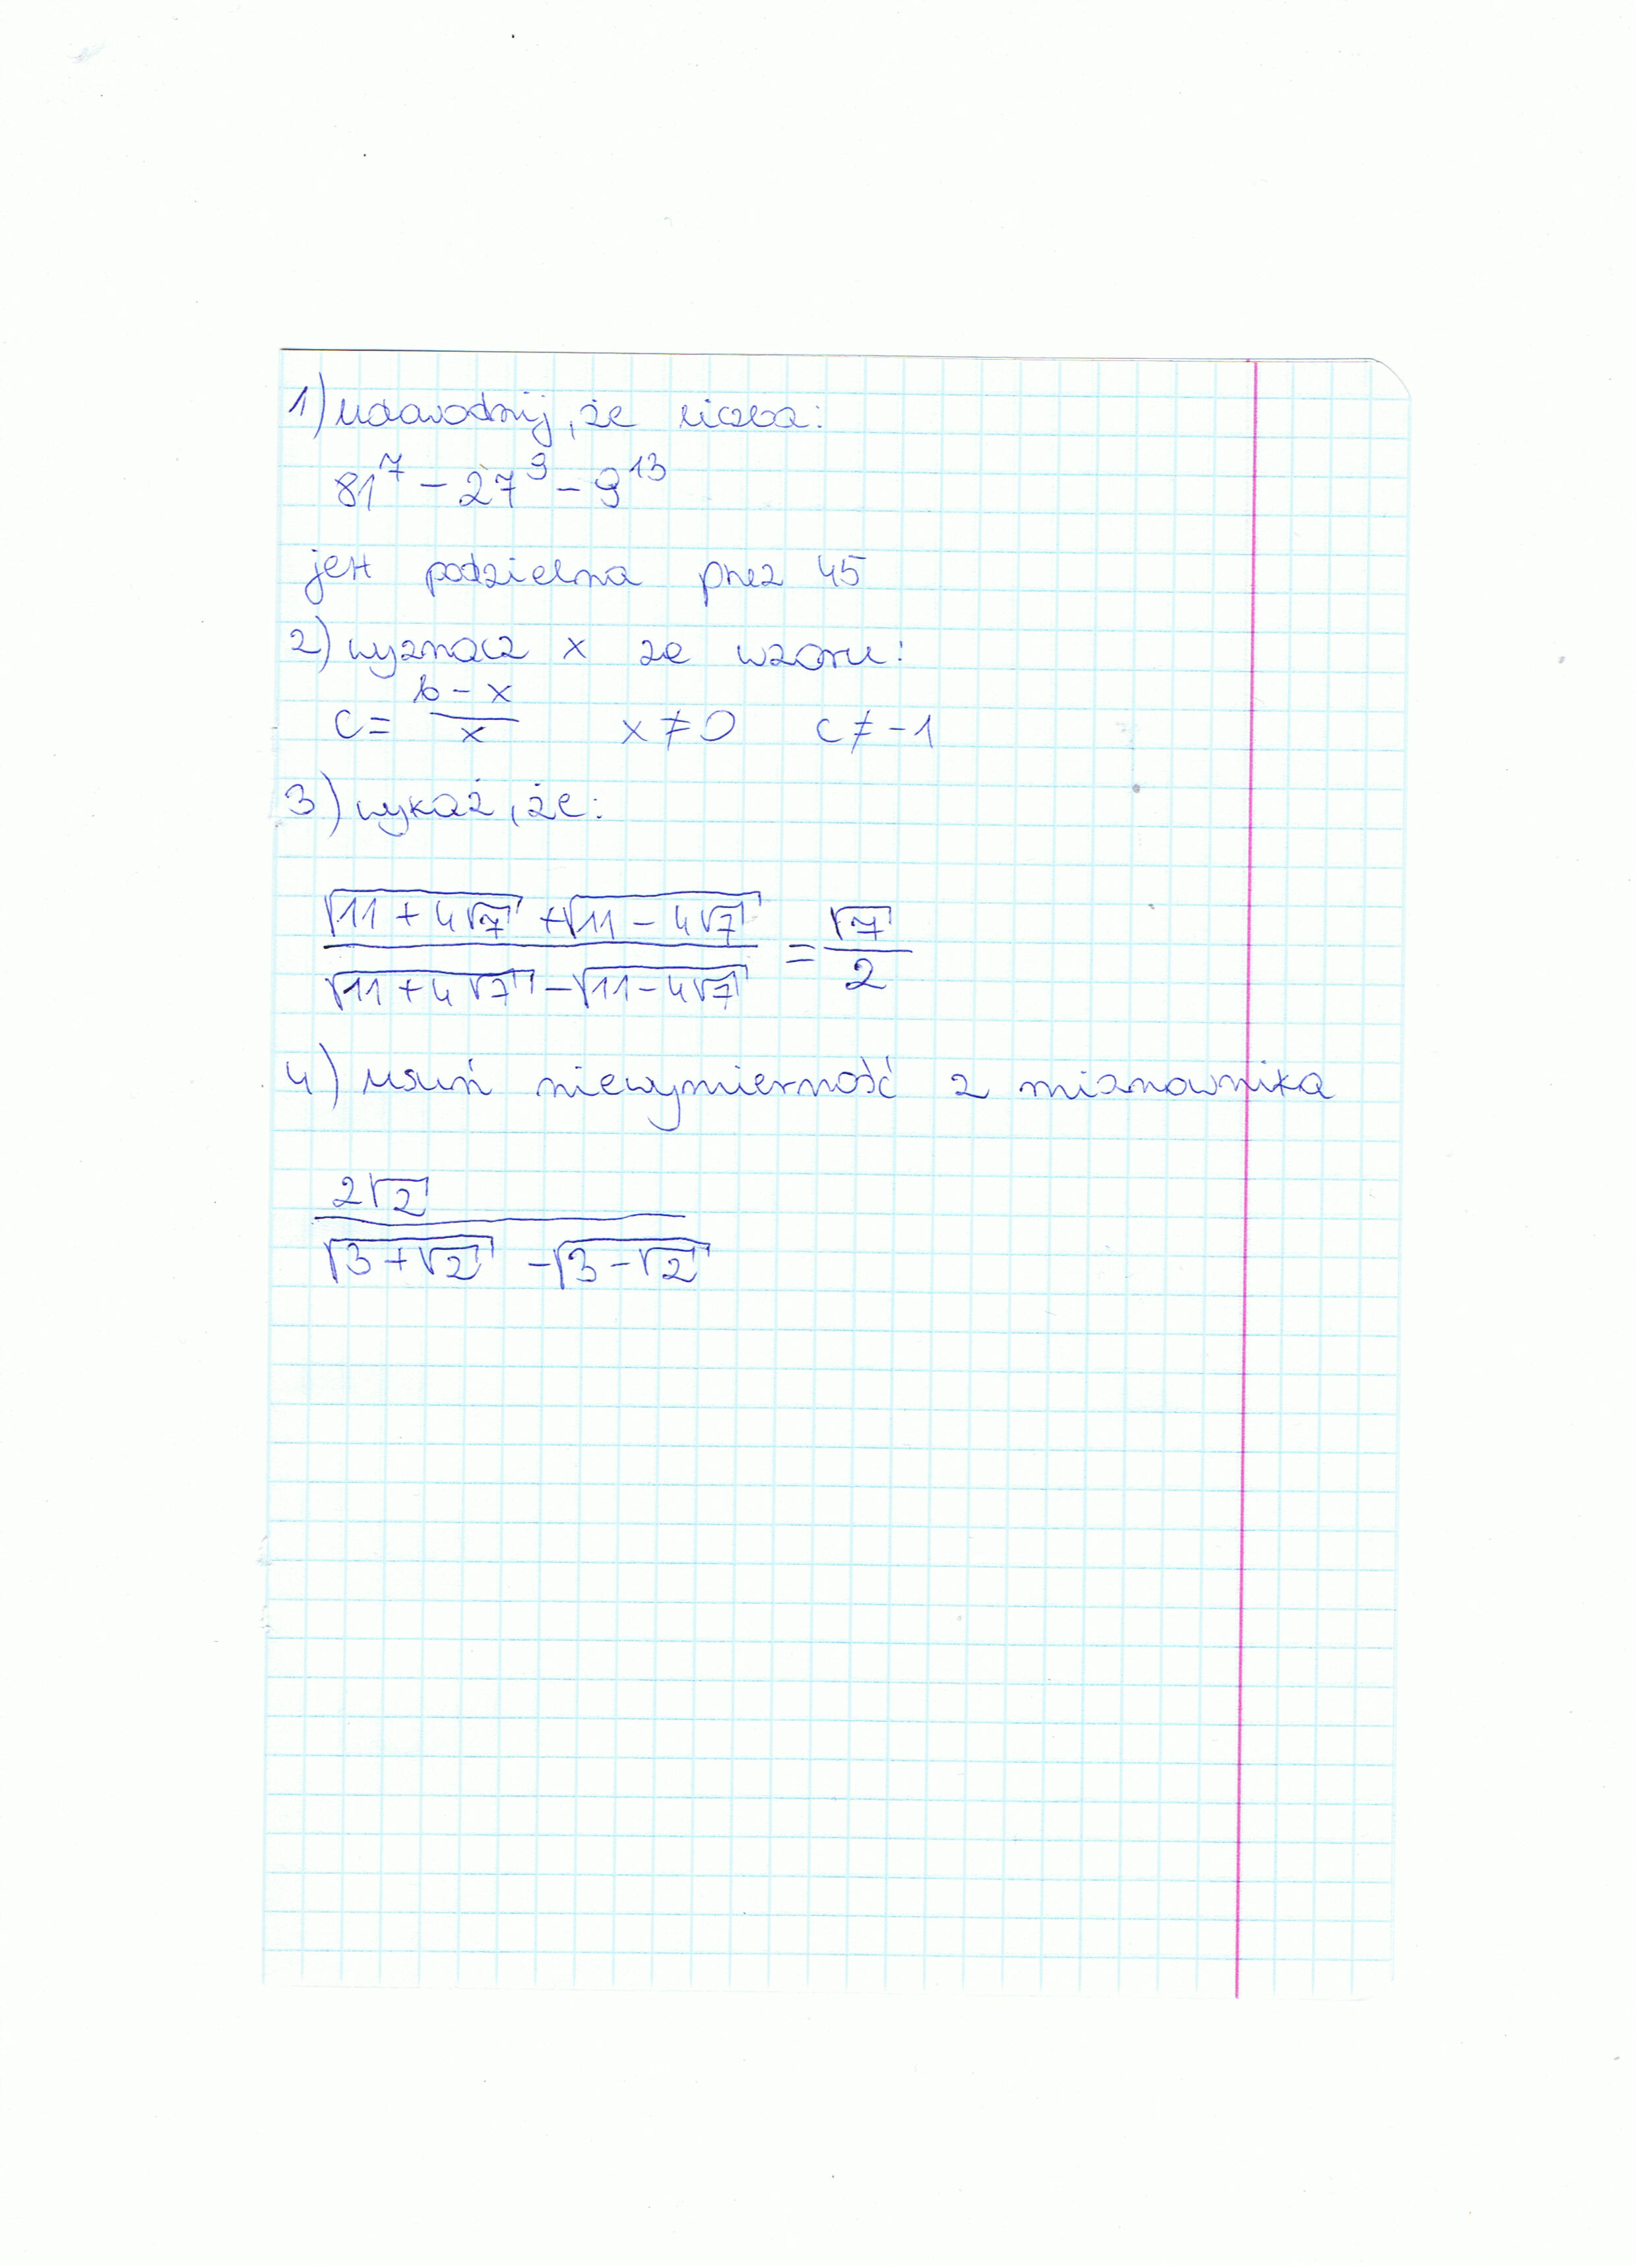 1) udowodnij, że liczba:
81⁷ - 27⁹ - 9¹³
jest podzielna przez 45
2) wyznacz x ze wzoru:
c = (b - x)/x    x ≠ 0    c ≠ -1
3) wykaż, że:
(√(11 + 4√7) + √(11 - 4√7))/(√(11 + 4√7) - √(11 - 4√7)) = √7/2
4) usuń niewymierność z mianownika
2√2/(√(3 + √2) - √(3 - √2))